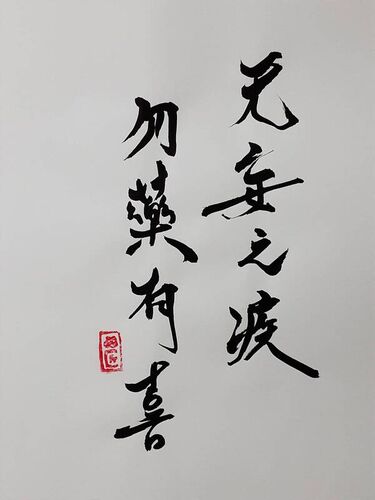 无妄之疾
勿藥有喜